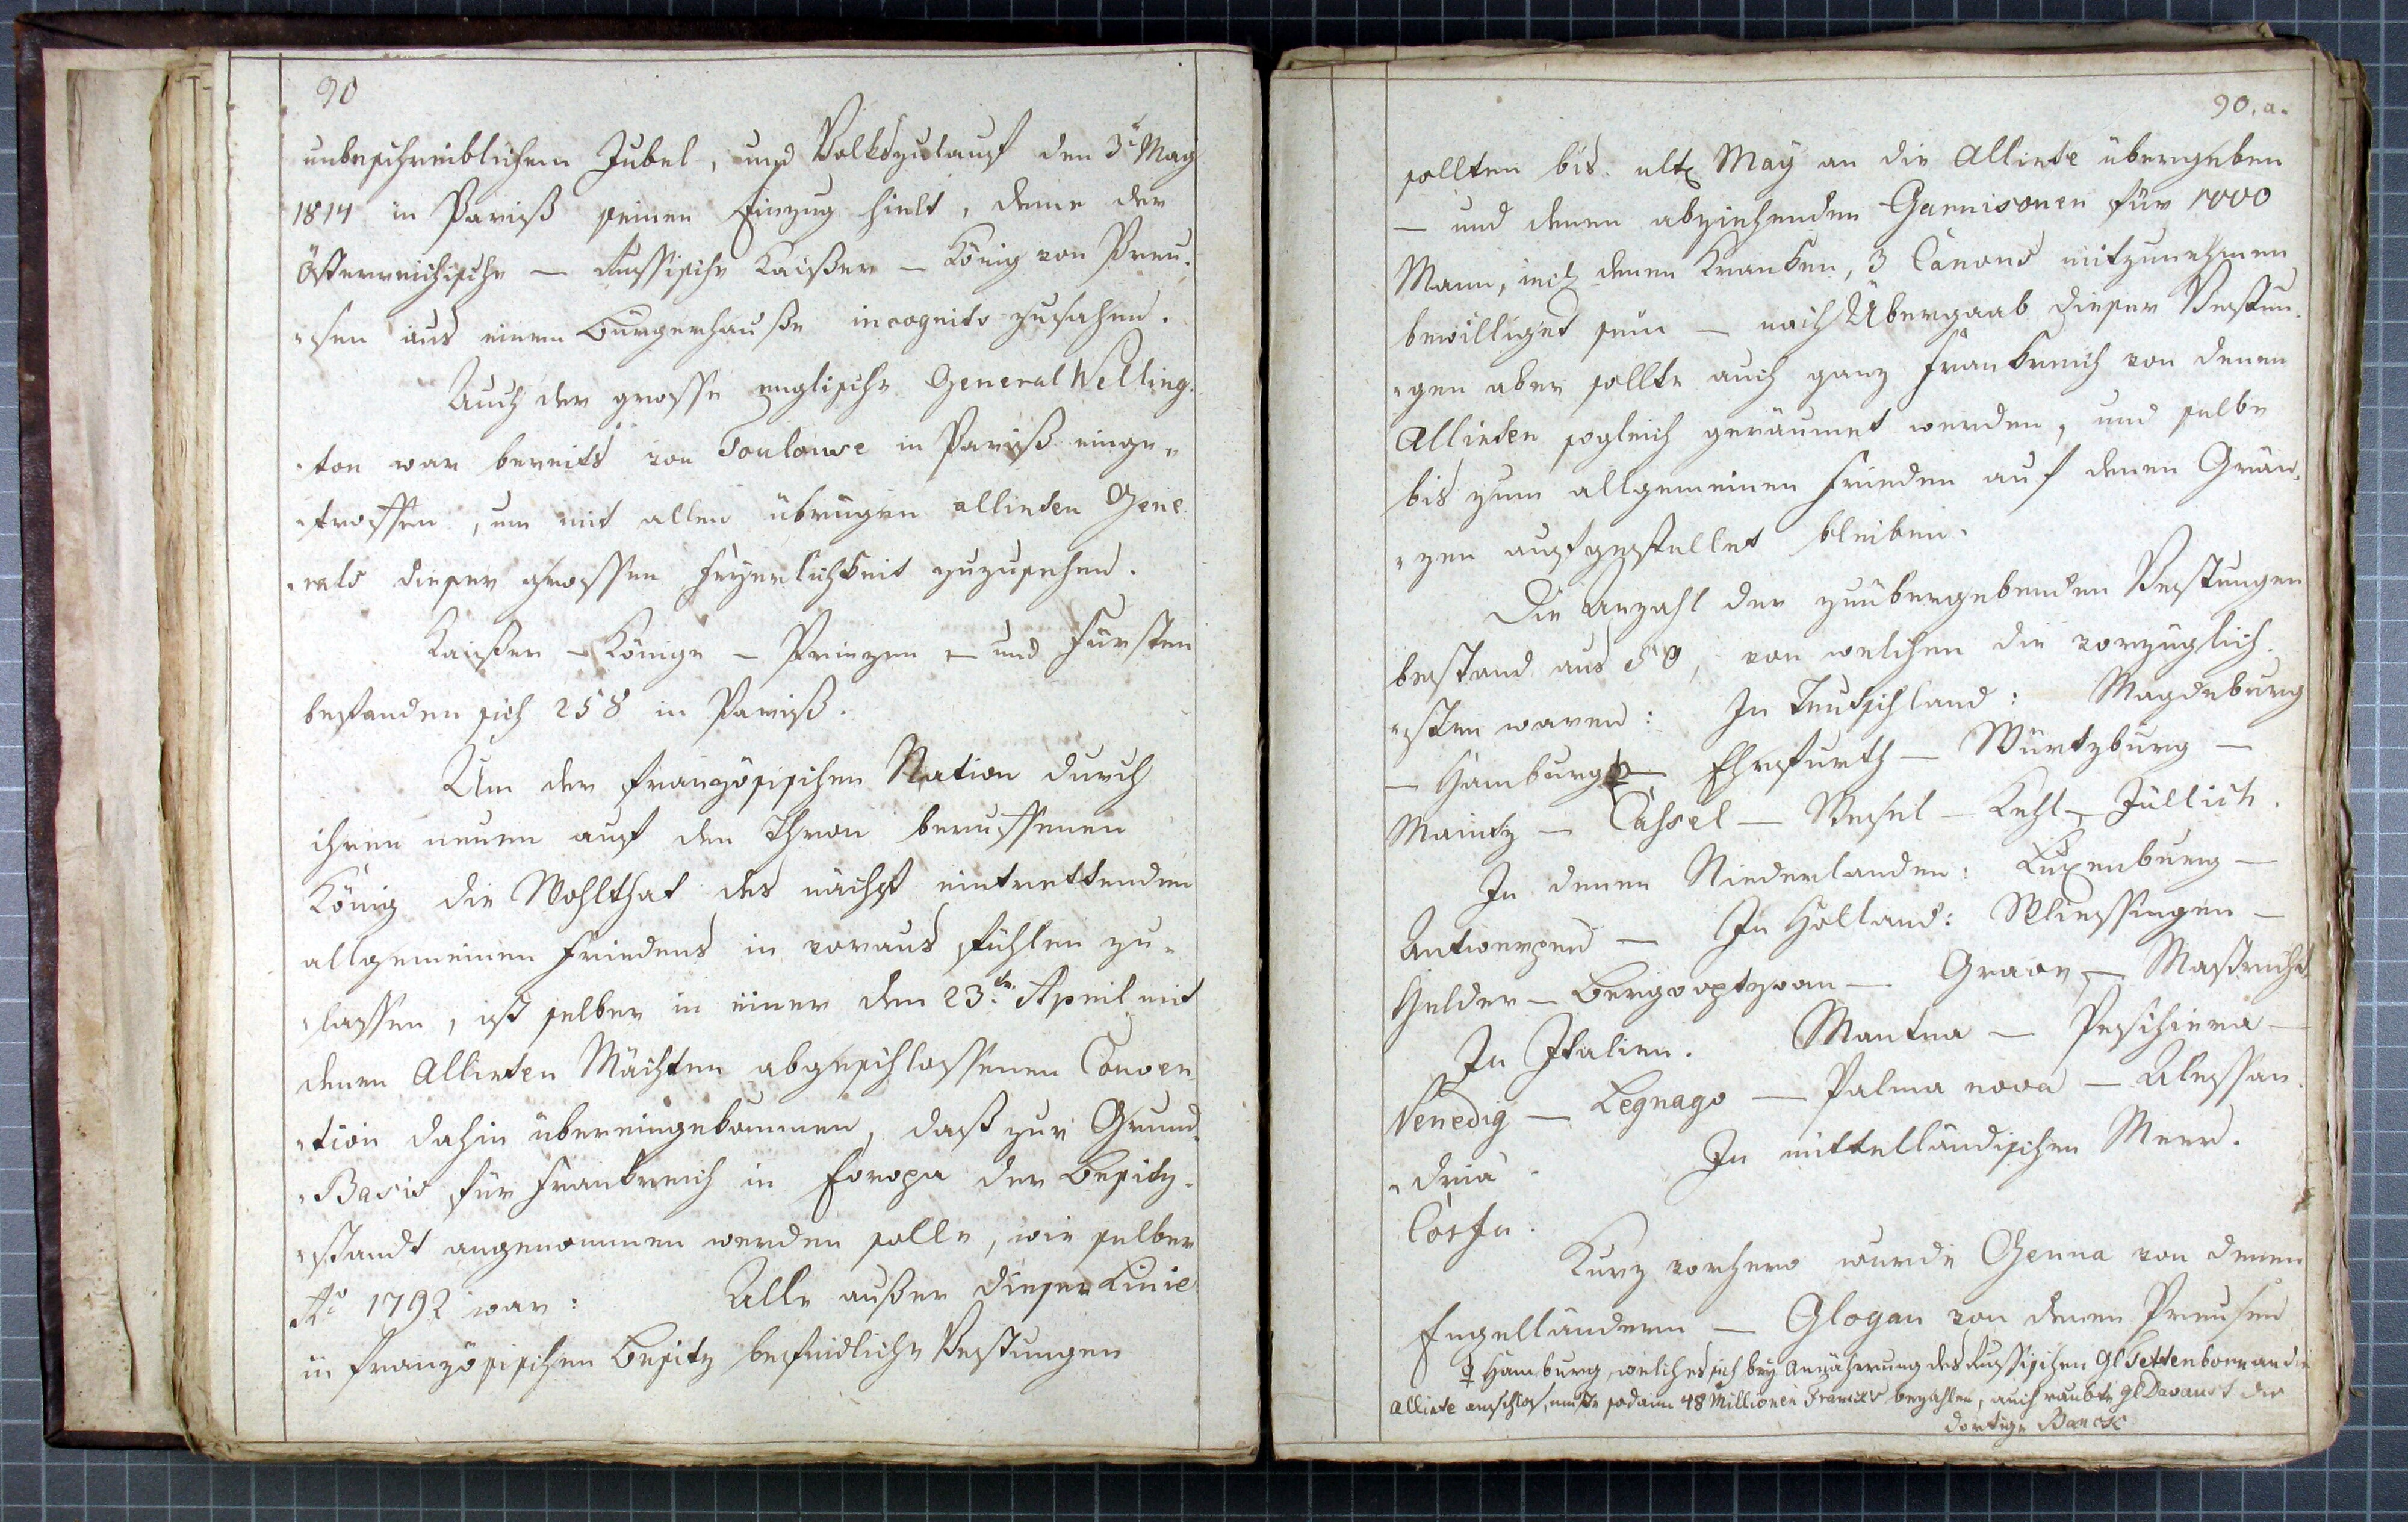 90
unbeschreiblichem Jubel, und Volkszulauf den 3t May
1814 in Pariß seinen Einzug hielt, deme der
Österreichische — Russische Kaißer — König von Preu-
-sen aus einem Burgerhauße incognito zusahen.
Auch der grosse englische General Welling-
-ton war bereits von Toulouse in Pariß einge-
-troffen, um mit allen übrigen allirten Gene
-rals dieser grossen Feyerlichkeit zuzusehen.
Kaißer — Könige — Prinzen — und Fürsten
befanden sich 258 in Pariß.
Um der französischen Nation durch
ihren neuen auf den Thron beruffenen
König die Wohlthat des nächst eintrettenden
allgemeinen Friedens in voraus fühlen zu-
-lassen, ist selber in einer den 23ten April mit
denen Allirten Mächten abgeschlossenen Conven
-tion dahin übereingekommen, daß zur Grund-
-Basis für Frankreich in Europa der Besitz-
-standt angenommen werden solle, wie selber
Ao 1792 war: Alle außer dieser Linie
in französischen Besitz befindliche Vestungen
90.a.
sollten bis ult. May an die Allirte übergeben
— und denen abziehenden Garnisonen für 1000
Mann, incl. denen Kranken, 3 Canons mitzunehmen
bewilliget sein — nach Übergaab dieser Vestun-
-gen aber sollte auch ganz Frankreich von denen
Allirten sogleich geräumet werden, und selbe
bis zum allgemeinen Frieden auf denen Grän-
-zen aufgestellet bleiben.
Die Anzahl der zuübergebenden Vestungen
bestand aus 50, von welchen die vorzüglich-
-sten waren: In Teutschland: Magdeburg
— Hamburg — Ehrfurth — Würtzburg —
Maintz — Cassel — Wesel — Kehl — Jüllich.
In denen Niederlanden: Luxenburg —
Antwerpen — In Holland: Vliessingen —
Helder — Bergooptzoom — Grave — Mastricht
In Italien. Mantua — Peschiera —
Venedig — Legnago — Palma nova — Alessan-
-dria. In mittelländischen Meer.
Corfu.
Kurz vorhero wurde Genua von denen
Engelländern — Glogau von denen Preusen
♀ Hamburg, welches sich bey Annäherung des Russischen Gl Tettenborn an die
Allirte anschlos, muste sodann 48 Millionen Francks bezahlen, auch raubte Gl Davaust die
dortige Banck